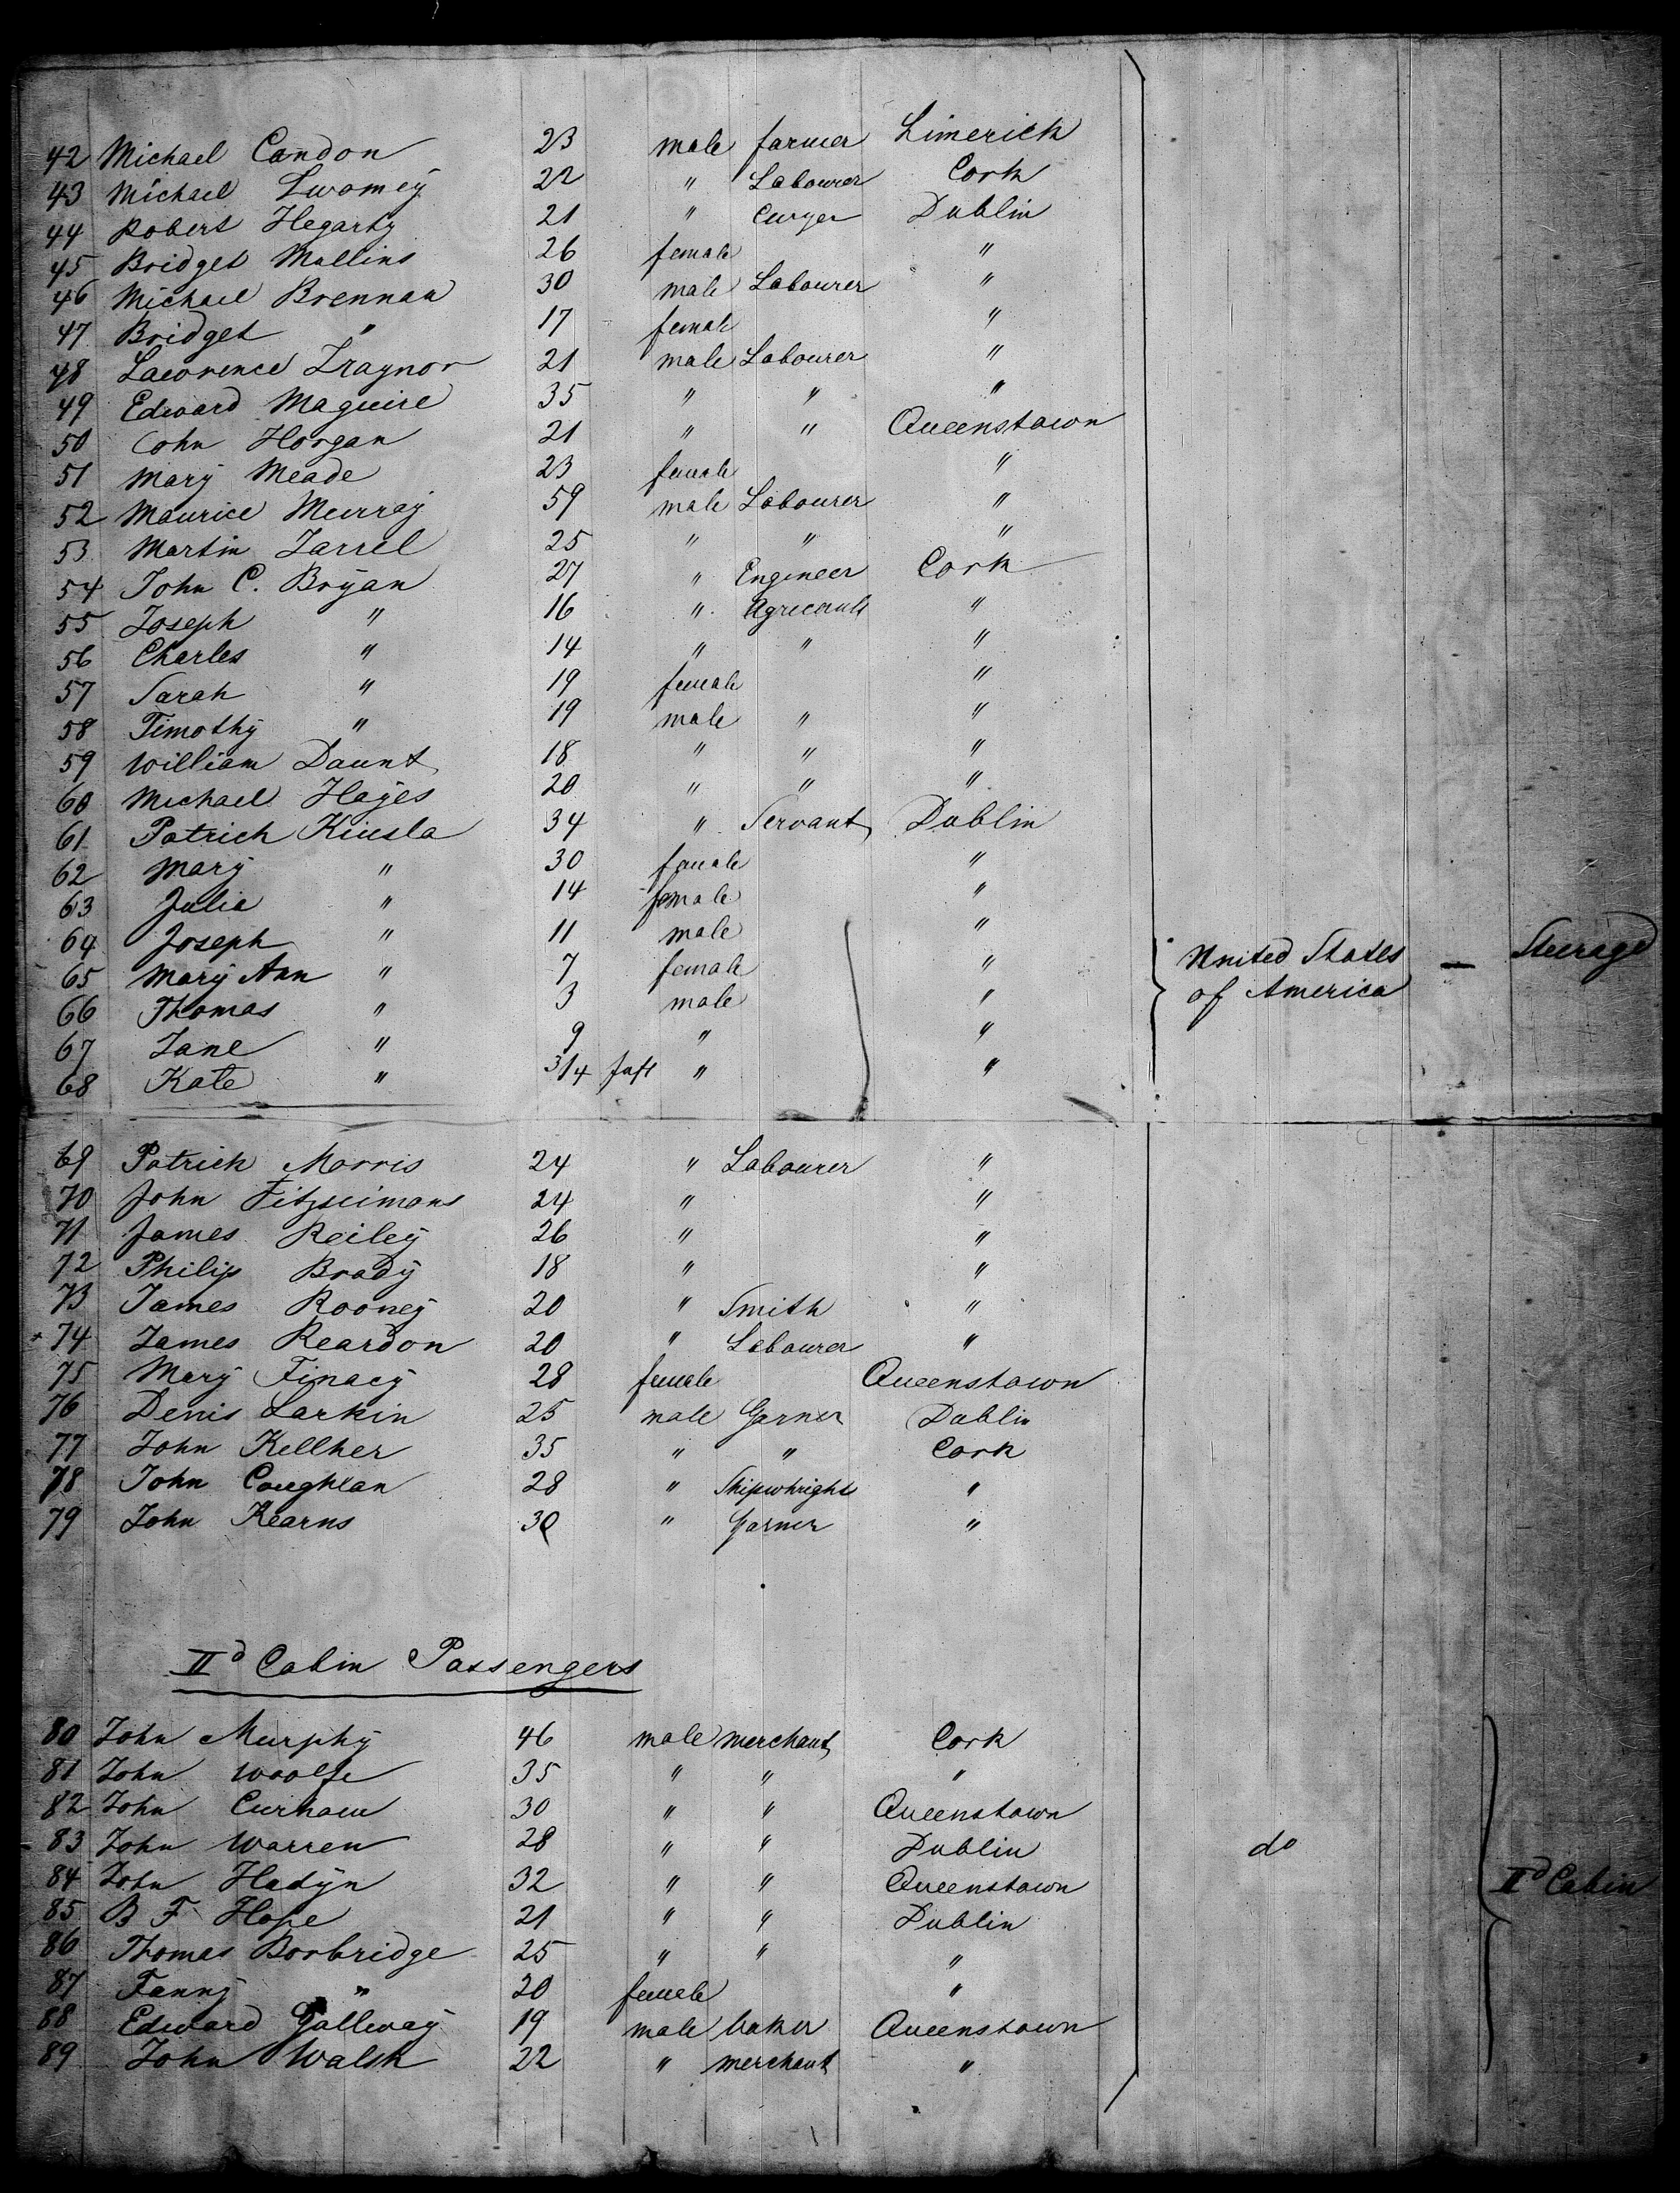 42 Michael Condon 23 male farmer Limerick
43 Michael Twomey 22 " Labourer Cork
44 Robert Hegarty 21 " Dublin
45 Bridget Mullins 26 female "
46 Michael Brennan 30 male Labourer "
47 Bridget " 17 female "
48 Lawrence Traynor 21 male Labourer "
49 Edward Maguire 35 " " "
50 John Horgan 21 " " Queenstown
51 Mary Meade 23 female "
52 Maurice Murray 59 male Labourer "
53 Martin Farrel 25 " " "
54 John C. Bryan 27 " Engineer Cork
55 Joseph " 16 " Agricault "
56 Charles " 14 " " "
57 Sarah " 19 female "
58 Timothy " 19 male " "
59 William Daunt 18 " " "
60 Michael Hayes 20 " " "
61 Patrick Kinsla 34 " Servant Dublin
62 Mary " 30 female "
63 Julia " 14 female "
64 Joseph " 11 male "
65 Mary Ann " 7 female " United States — Steerage
66 Thomas " 3 male " of America
67 Jane " 9 " "
68 Kate " 3/4 Inft " "
69 Patrick Morris 24 " Labourer "
70 John Fitzseimons 24 " "
71 James Reiley 26 " "
72 Philip Brady 18 " "
73 James Rooney 20 " Smith "
74 James Reardon 20 " Labourer "
75 Mary Finacy 28 female Queenstown
76 Denis Larkin 25 male Garner Dublin
77 John Kellher 35 " " Cork
78 John Coughlan 28 " Shipwhright "
79 John Kearns 30 " Garner "
IId Cabin Passengers
80 John Murphy 46 male merchant Cork
81 John Woolfe 35 " " "
82 John Curnow 30 " " Queenstown
83 John Warren 28 " " Dublin do
84 John Hadyn 32 " " Queenstown IId Cabin
85 B F Hope 21 " " Dublin
86 Thomas Borbridge 25 " " "
87 Fanny " 20 female "
88 Edward Gallway 19 male baker Queenstown
89 John Walsh 22 " merchant "